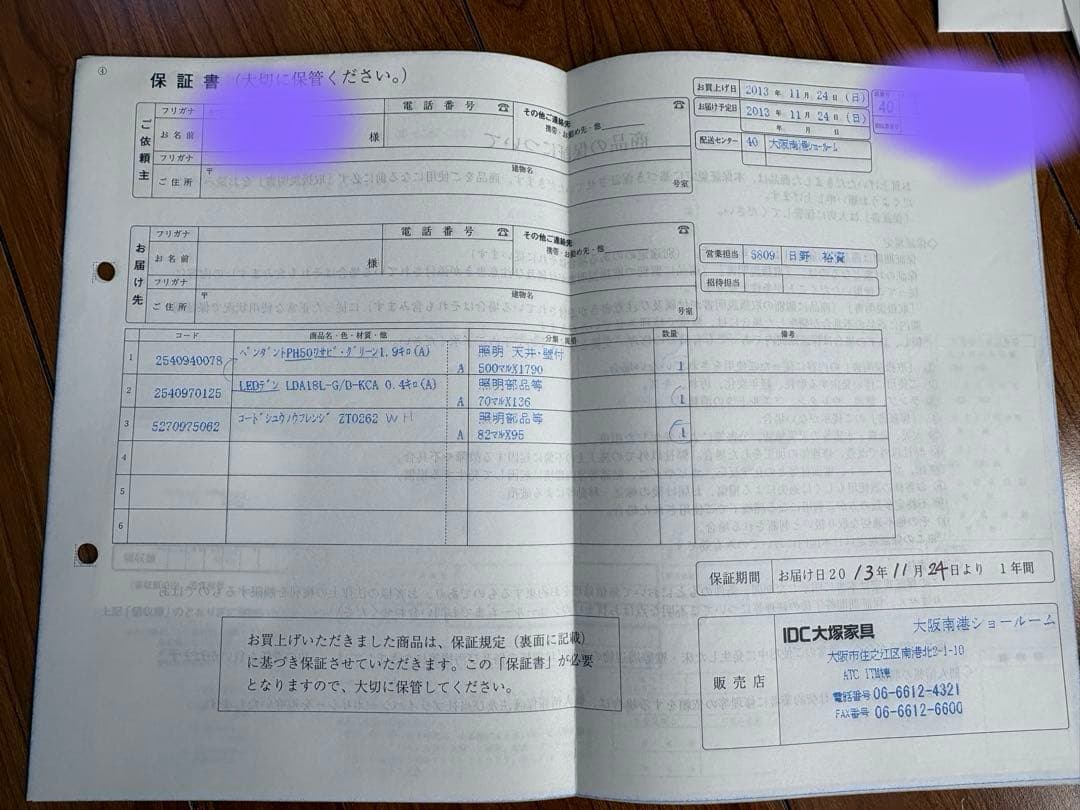 ④
保証書 (大切に保管ください。)
ご依頼主
フリガナ
お名前
様
電話番号 ☎
その他ご連絡先
携帯・お勤め先・他
☎
フリガナ
ご住所
〒
建物名
号室
お買上げ日 2013 年 11月 24日 (日)
お届け予定日 2013 年 11月 24日 (日)
年 月 日
配送センター 40 大阪南港ショールーム
40
お届け先
フリガナ
お名前
様
電話番号 ☎
その他ご連絡先
携帯・お勤め先・他
☎
フリガナ
ご住所
〒
建物名
号室
営業担当 5809 日野
招待担当
コード 商品名・色・材質・他 分類・規格 数量 備考
1 2540940078 ペンダントPH50ワサビ・グリーン1.9キロ(A) A 照明 天井・壁付 500マルX1790 1
2 2540970125 LEDデン LDA18L-G/D-KCA 0.4キロ(A) A 照明部品等 70マルX136 1
3 5270975062 コードシュウノウフレンジ ZT0262 WH A 照明部品等 82マルX95 1
4
5
6
保証期間 お届け日2013年11月24日より 1年間
お買上げいただきました商品は、保証規定(裏面に記載)
に基づき保証させていただきます。この「保証書」が必要
となりますので、大切に保管してください。
販売店
IDC大塚家具 大阪南港ショールーム
大阪市住之江区南港北2-1-10
ATC ITM棟
電話番号 06-6612-4321
FAX番号 06-6612-6600